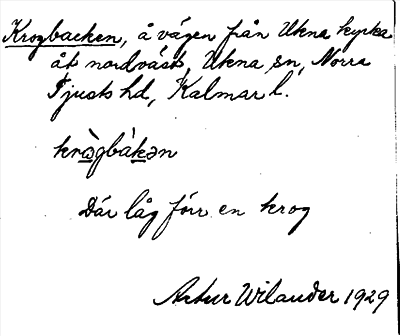 Krogbacken, å vägen från Ukna kyrka
åt nordväst, Ukna sn, Norra
Tjusts hd, Kalmar l.
krògbàkən
Där låg förr en krog
Artur Wilander 1929